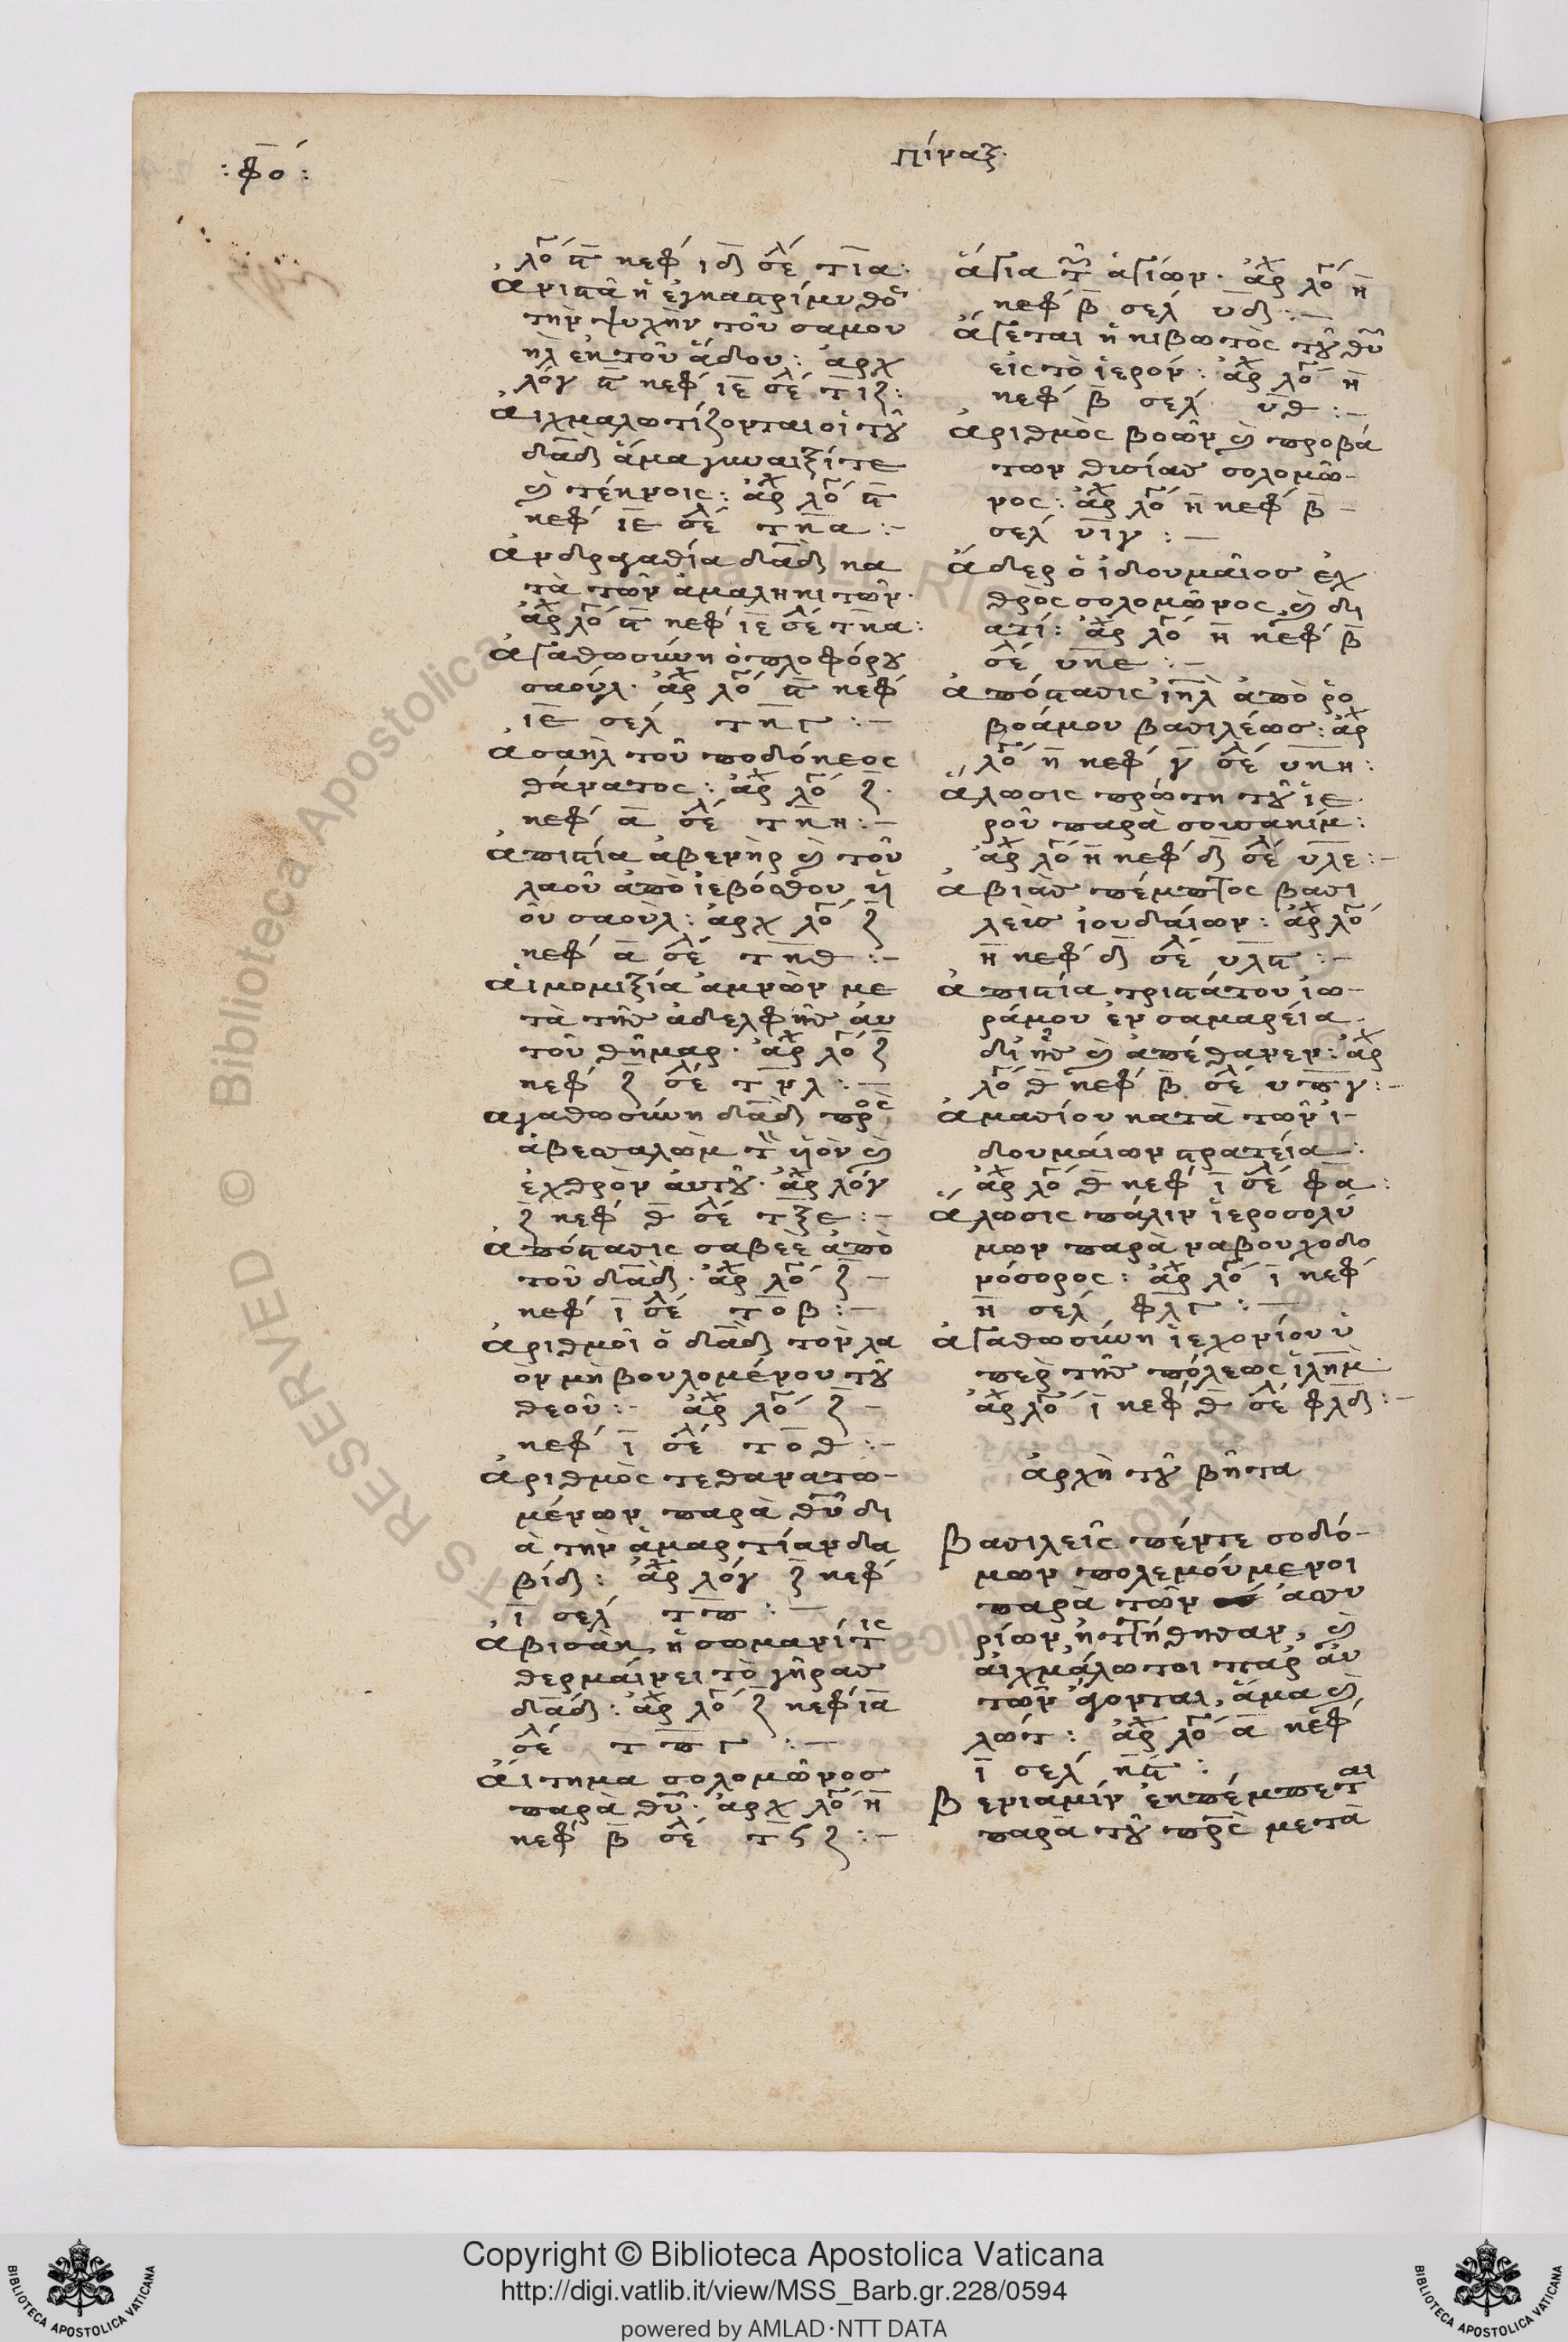 :φ̅ό:
Πίναξ·
λο̅́ ϛ̅ κεφ́ ιδ̅ σε̅́λ τι̅α·
τὴν ψυχὴν τοῦ σαμου
ηλ ἐκ τοῦ ἅδου: ἀρχ
λόγ ϛ̅ κεφ́ ιε̅ σέλ τι̅ζ:
Αἰχμαλωτίζονται οἱ τοῦ
δα̅δ ἅμα γυναιξί τε
καὶ τέκνοις: ἀρχ λό ϛ̅
κεφ́ ιε̅ σέλ τκ̅α:-
Ἀνδραγαθία δα̅δ κα
τὰ τῶν ἀμαληκιτῶν·
ἀρχ λό ϛ̅ κεφ́ ιε̅ σέλ τκ̅α:
Ἀγαθωσύνη ὁπλοφόρου
σαούλ· ἀρχ λό ϛ̅ κεφ́
ιε̅ σελ́ τκ̅γ:-
Ἀσαὴλ τοῦ ποδόκεος
θάνατος: ἀρχ λό ζ̅·
κεφ́ α̅ σέλ τκ̅η:-
Ἀπιστία ἀβενὴρ καὶ τοῦ
λαοῦ ἀπὸ ἰεβόσθου ὑ
οῦ σαούλ: ἀρχ λό ζ̅
κεφ́ α̅ σέλ τκ̅θ:-
Αἱμομιξία ἀμνὼν με
τὰ τῆς ἀδελφῆς αὐ
τοῦ θῆμαρ· ἀρχ λό ζ̅
κεφ́ ζ̅ σέλ τν̅λ:-
Ἀγαθωσύνη δα̅δ πρὸς
ἀβεσαλὼμ τὸν ὑὸν καὶ
ἐχθρὸν αὐτοῦ· ἀρχ λόγ
ζ̅ κεφ́ θ̅ σέλ τξ̅ε:-
Ἀπόστασις σαβεὲ ἀπὸ
τοῦ δα̅δ· ἀρχ λό ζ̅-
κεφ́ ι̅ σέλ το̅β:-
Ἀριθμοῖ ὁ δα̅δ τὸν λα
ὸν μὴ βουλομένου τοῦ
θεοῦ:- ἀρχ λό ζ̅-
κεφ́ ι̅ σέλ το̅θ:-
Ἀριθμὸς τεθανατω-
μένων παρὰ θυ̅ δι
ὰ τὴν ἁμαρτίαν δα
βίδ: ἀρχ λόγ ζ̅ κεφ́
ι̅ σελ́ τπ̅:-
Ἀβισὰκ ἡ σωμανίτις
θερμαίνει τὸ γῆρας
δα̅δ: ἀρχ λό ζ̅ κεφ́ ια̅
σέλ τπ̅γ:-
Αἴτημα σολομῶνος
παρὰ θυ̅· ἀρχ λό η̅
κεφ́ β̅ σέλ τϟ̅ζ:-
Ἅγια τῶν ἁγίων· ἀρχ λό η̅
κεφ́ β̅ σελ́ υδ̅:-
Ἄγεται ἡ κιβωτὸς τοῦ θυ̅
εἰς τὸ ἱερόν: ἀρχ λό η̅
κεφ́ β̅ σελ́ υ̅θ:-
Ἀριθμὸς βοῶν καὶ προβά
των θυσίας σολομῶ-
νος: ἀρχ λό η̅ κεφ́ β̅-
σελ́ υι̅γ:-
Ἄδερ ὁ ἰδουμαῖος ἐχ
θρὸς σολομῶνος, καὶ δι
ατί: ἀρχ λό η̅ κεφ́ β̅
σέλ υκ̅ε:-
Ἀπόστασις ἰη̅λ ἀπὸ ῥο
βοάμου βασιλέως: ἀρχ
λό η̅ κεφ́ γ̅ σέλ υκ̅η:
Ἅλωσις πρώτη τοῦ ἱε
ροῦ παρὰ σουσακίμ:
ἀρχ λό η̅ κεφ́ δ̅ σέλ υλ̅ε:-
Ἀβιὰς πέμπτος βασι
λεὺς ἰουδαίων: ἀρχ λό
η̅ κεφ́ δ̅ σέλ υλ̅ϛ:-
Ἀπιστία τριστάτου ἰω-
ράμου ἐν σαμαρεία
δι ῆς καὶ ἀπέθανεν: ἀρχ
λό θ̅ κεφ́ β̅ σέλ υπ̅γ:-
Ἀμασίου κατὰ τῶν ἰ-
δουμαίων στρατεία·
ἀρχ λό θ̅ κεφ́ ι̅ σέλ φα̅:
Ἅλωσις πάλιν ἱεροσολύ
μων παρὰ ναβουχοδο
νόσορος: ἀρχ λό ι̅ κεφ́
η̅ σελ́ φλ̅γ:-
Ἀγαθωσύνη ἰεχονίου ὑ
πὲρ τῆς πόλεως ἱλη̅μ·
ἀρχ λό ι̅ κεφ́ θ̅ σέλ φλ̅δ:-
ἀρχὴ τοῦ βῆτα
Βασιλεῖς πέντε σοδό-
μων πολεμούμενοι
παρὰ τῶν ἀσυ
ρίων ἡττήθησαν, καὶ
αἰχμάλωτοι παρ αὐ
τῶν ἄγονται, ἅμα καὶ
λώτ: ἀρχ λό α̅ κεφ́
ι̅ σελ́ κϛ̅:
Βενιαμὶν ἐκπέμπεται
παρὰ τοῦ πρ̅ς μετὰ
Copyright © Biblioteca Apostolica Vaticana
http://digi.vatlib.it/view/MSS_Barb.gr.228/0594
powered by AMLAD·NTT DATA